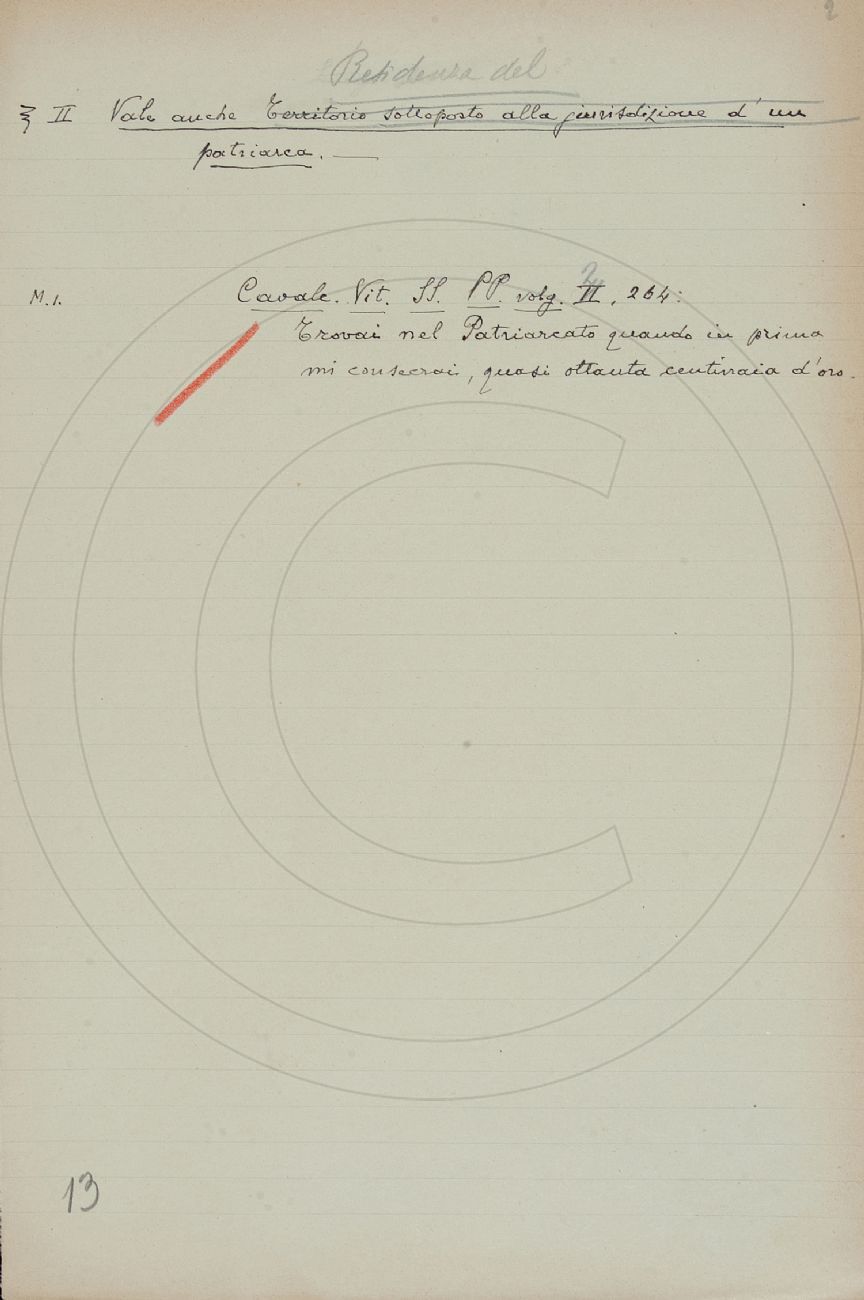 2
Residenza del
§ II Vale anche Territorio sottoposto alla giurisdizione d'un
patriarca. —
M. 1. Cavalc. Vit. SS. PP. volg. 2, II, 264:
Trovai nel Patriarcato quando in prima
mi consecrai, quasi ottanta centinaia d'oro.
13